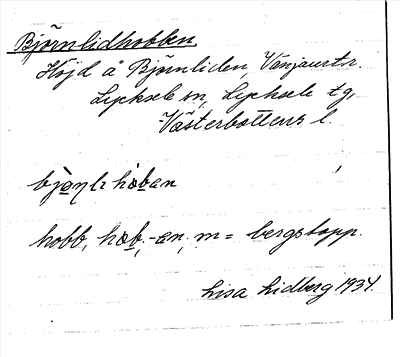 Björnlidhobben.
Höjd å Björnliden, Vänjaurtr.
Lycksele sn, Lycksele tg,
Västerbottens l.
bjön̥lı hɷban
hobb, hɷb, -en, m = bergstopp.
Lisa Lidberg 1934.